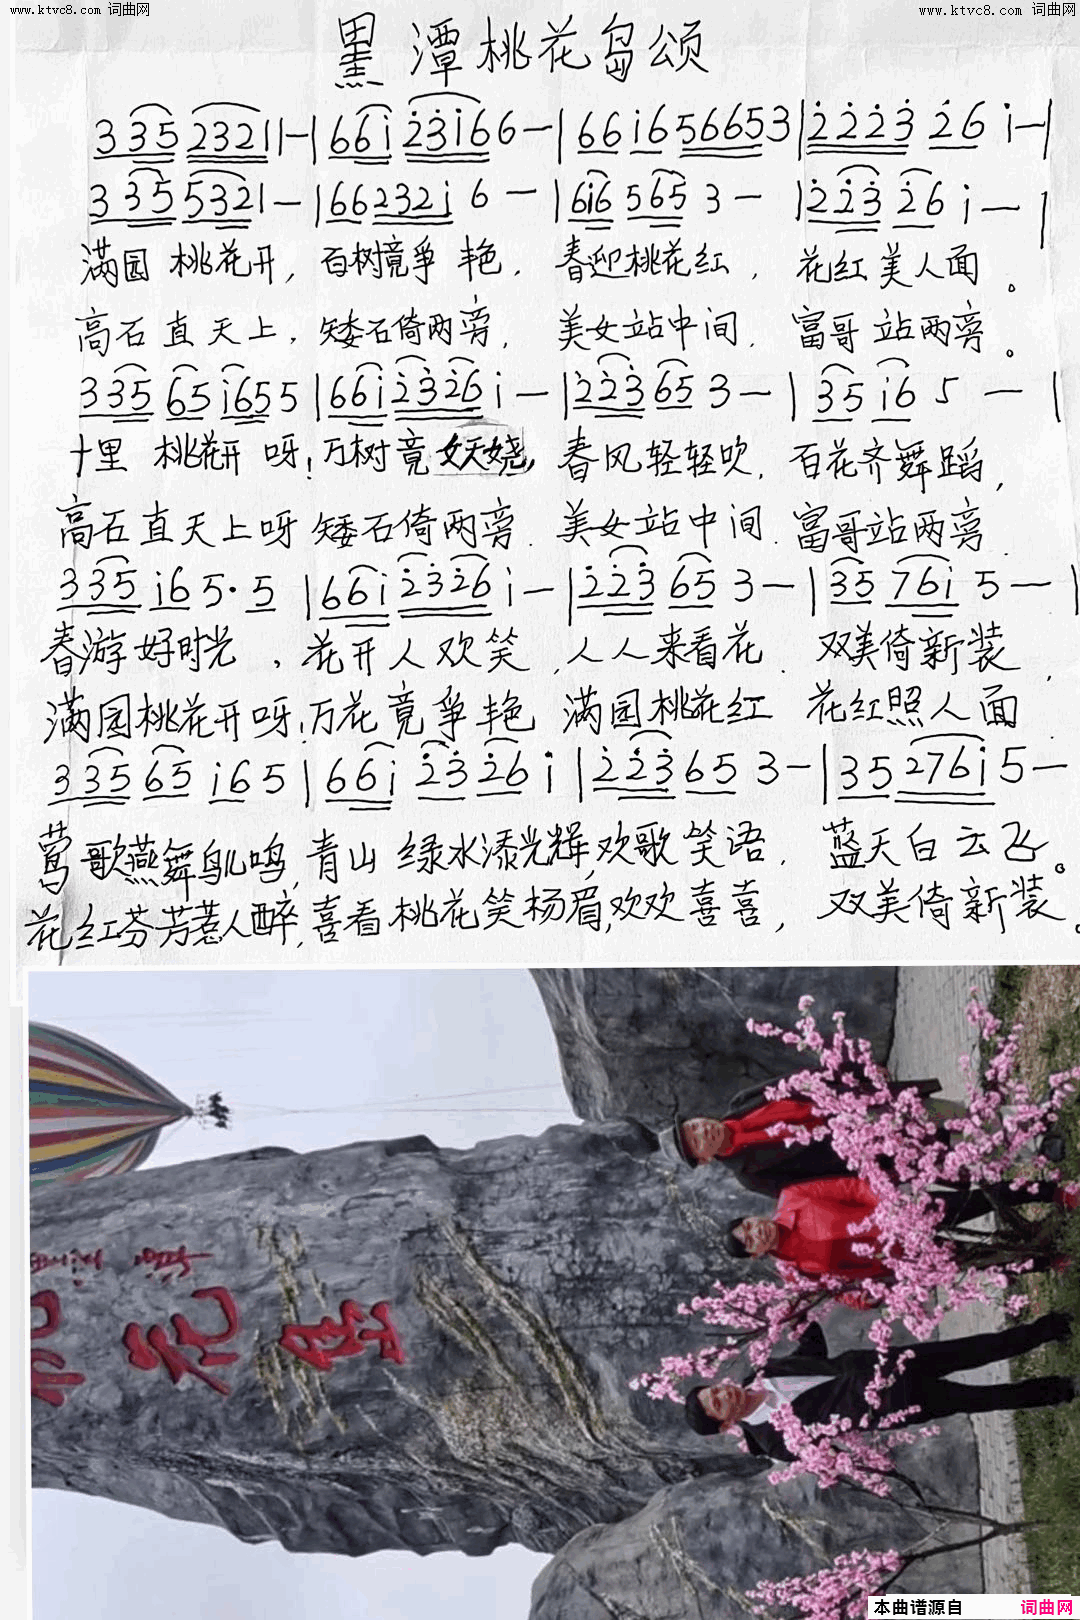 www.ktvc8.com 词曲网
www.ktvc8.com 词曲网
黑潭桃花岛颂
3 3 5 2 3 2 1 1 - | 6 6 i 2 3 i 6 6 - | 6 6 i 6 5 6 6 5 3 | 2 2 2 3 2 6 i - |
3 3 5 5 3 2 1 - | 6 6 2 3 2 i 6 - | 6 i 6 5 6 5 3 - | 2 2 3 2 6 i - |
满园桃花开,百树竟争艳,春迎桃花红,花红美人面。
高石直天上,矮石倚两旁,美女站中间,富哥站两旁。
3 3 5 6 5 i 6 5 5 | 6 6 i 2 3 2 6 i - | 2 2 3 6 5 3 - | 3 5 i 6 5 - |
十里桃花开呀!万树竟妖娆,春风轻轻吹,百花齐舞蹈,
高石直天上呀矮石倚两旁.美女站中间.富哥站两旁.
3 3 5 i 6 5 · 5 | 6 6 i 2 3 2 6 i - | 2 2 3 6 5 3 - | 3 5 7 6 i 5 - |
春游好时光,花开人欢笑,人人来看花.双美倚新装,
满园桃花开呀!万花竟争艳 满园桃花红 花红照人面
3 3 5 6 5 i 6 5 | 6 6 i 2 3 2 6 i | 2 2 3 6 5 3 - | 3 5 2 7 6 i 5 -
莺歌燕舞鸟儿鸣,青山绿水添光辉,欢歌笑语,蓝天白云飞。
花红芬芳惹人醉,喜看桃花笑杨眉,欢欢喜喜,双美倚新装。
黑潭
桃花岛
本曲谱源自 词曲网